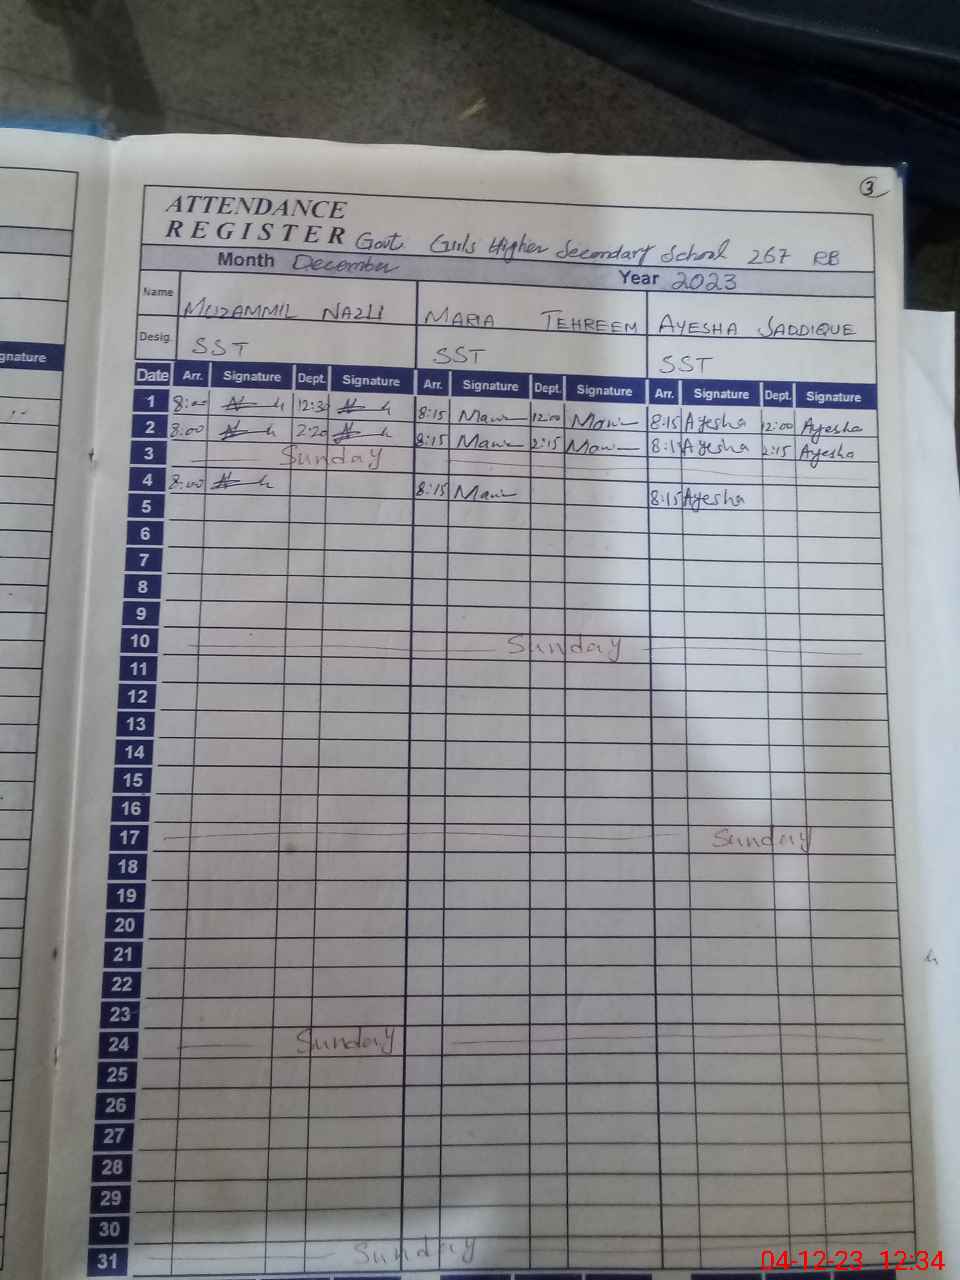 3
ATTENDANCE
REGISTER Govt. Girls Higher Secondary School 267 RB
Month December Year 2023
Name MUZAMMIL NAZLI MARIA TEHREEM AYESHA SADDIQUE
Desig. SST SST SST
gnature
Date Arr. Signature Dept. Signature Arr. Signature Dept. Signature Arr. Signature Dept. Signature
1 8:00 12:30 8:15 12:00 8:15 Ayesha 12:00 Ayesha
2 8:00 2:20 8:15 2:15 8:15 Ayesha 2:15 Ayesha
3 Sunday
4 8:00 8:15 8:15 Ayesha
5
6
7
8
9
10 Sunday
11
12
13
14
15
16
17 Sunday
18
19
20
21
22
23
24 Sunday
25
26
27
28
29
30
31 Sunday
04-12-23 12:34